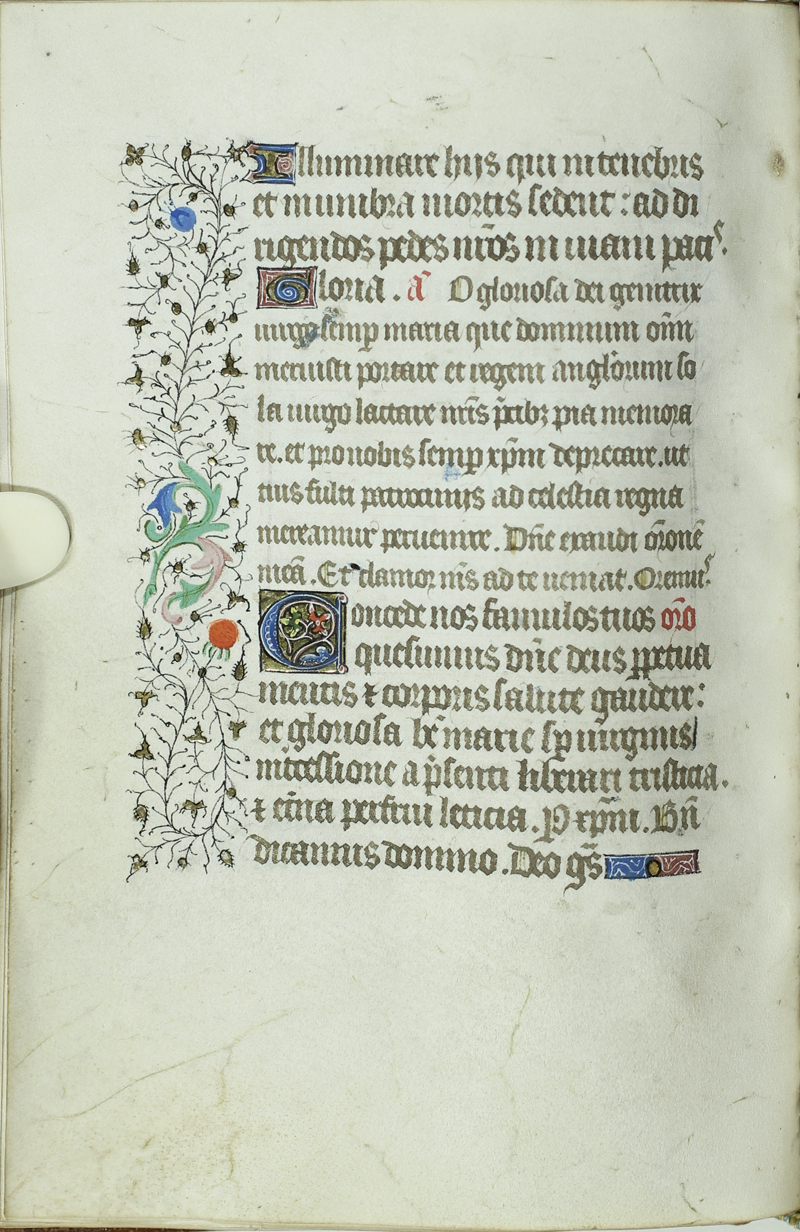 Illuminare hijs qui in tenebris
et in umbra mortis sedent : ad di
rigendos pedes nr̄os in uiam pacis.
Gloria . a͞ O gloriosa dei genitrix
uirgo semp maria que dominum om̄
meruisti portare et regem anglorum so
la uirgo lactare nr̄is p̄cibꝫ pia memora
re . et pro nobis semp xp̄m deprecare . ut
tuis fulti patrocinijs ad celestia regna
mereamur peruenire . Dn̄e exaudi or̄onē
meā . Et clamor m̄s ad te ueniat . Oremus
Concede nos famulos tuos or̄o
quesumus dn̄e deus ꝑpetua
mentis ⁊ corporis salute gaudere :
et gloriosa bt̄e marie sp̄ uirginis
int̄cessione a p̄senti liberari tristicia .
⁊ et̄na perfrui leticia . P xp̄m . Bn̄
dicamus domino . Deo gr̄s